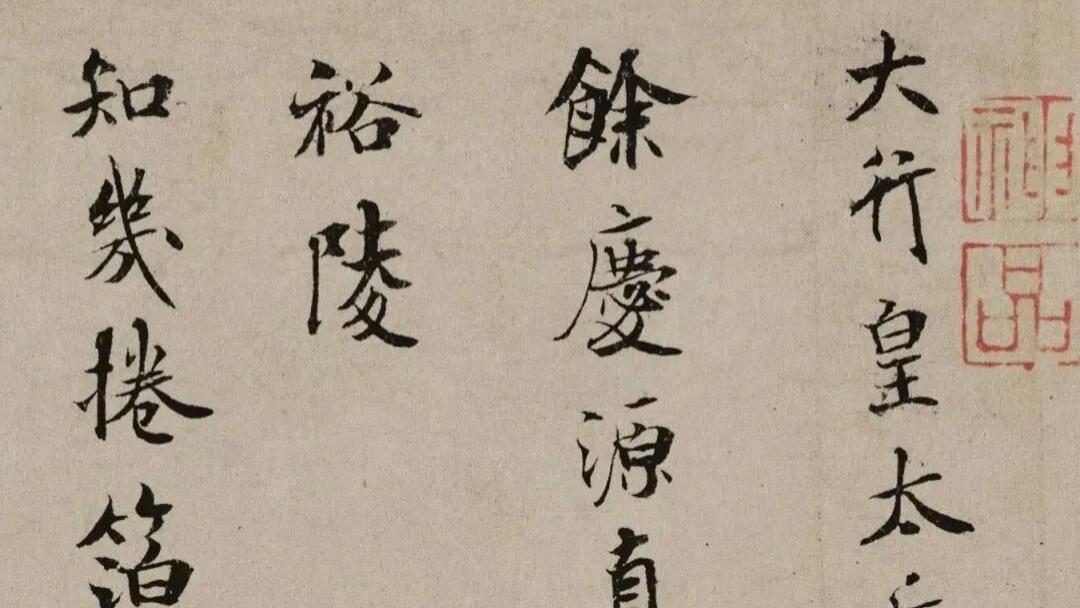 神品
大行皇太
餘慶源
裕陵
知幾捲箔